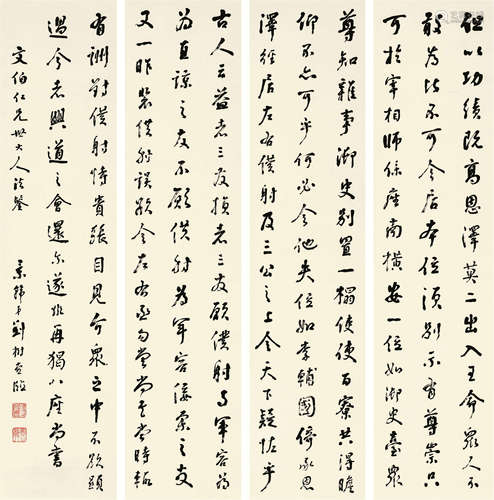 但以功績既高恩澤莫二出入王命眾人不
敢為比不可令居本位須別示有尊崇只
可於宰相師保座南橫安一位如御史臺眾
尊知雜事御史別置一榻使使百寮共得瞻
仰不亦可乎何必令他失位如李輔國倚承恩
澤徑居左右僕射及三公之上令天下疑怪乎
古人云益者三友損者三友願僕射與軍容為
為直諒之友不願僕射為軍容佞柔之友
又一昨裴僕射誤欲令左右丞勾當尚書當時輒
有詶對僕射恃貴張目見介眾之中不欲顯
過今者興道之會還爾遂非再猲八座尚書
文伯仁兄世大人法鑒
景韓弟劉樹堂臨